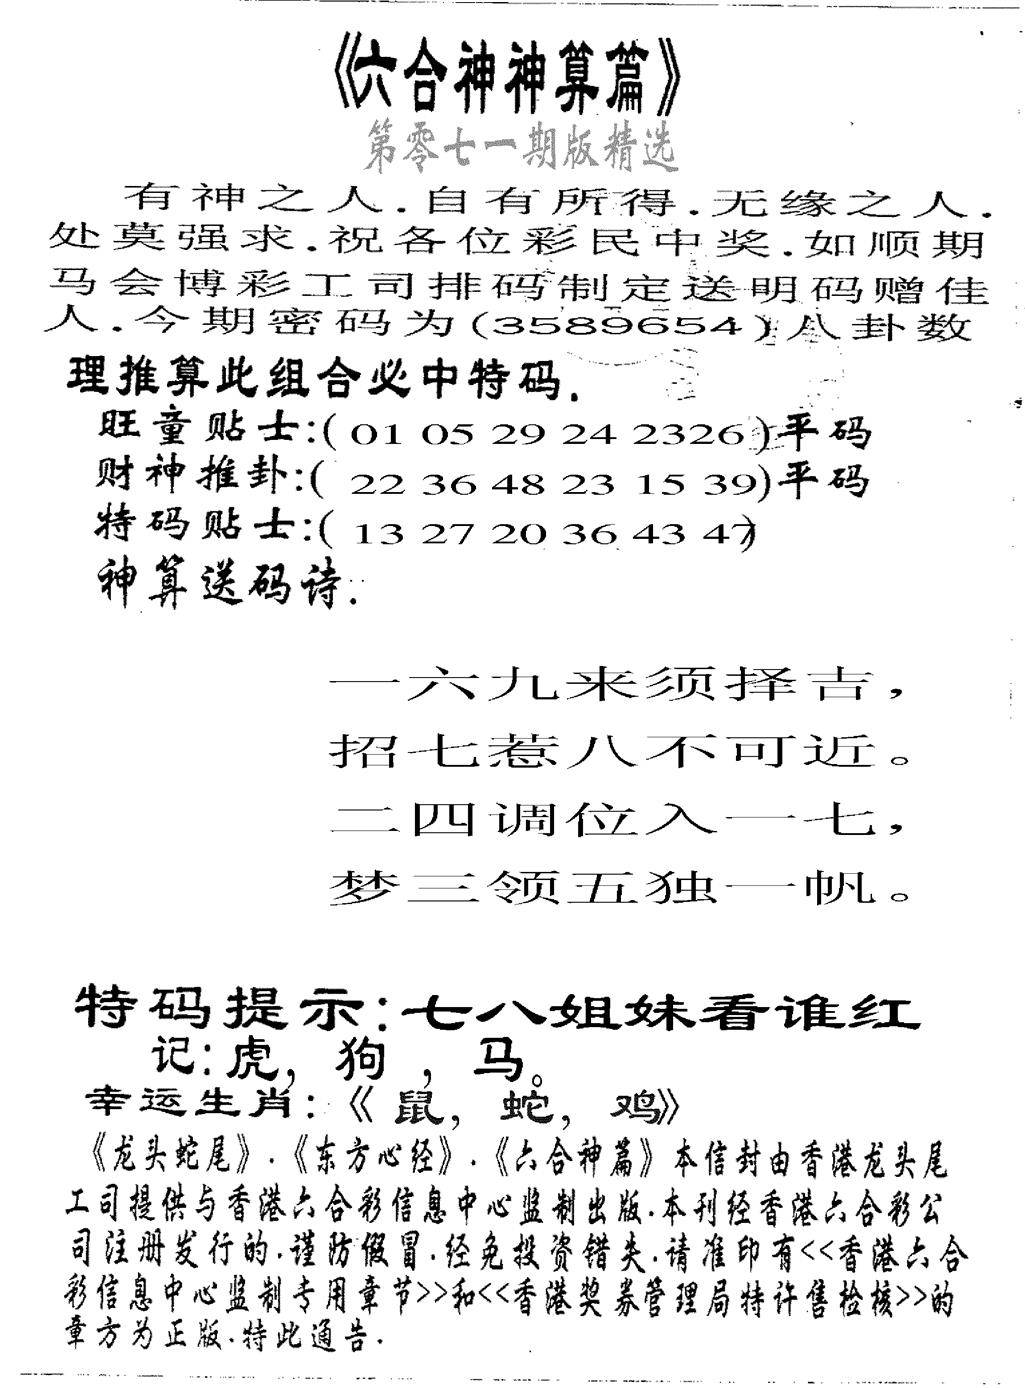 《六合神神算篇》
第零七一期版精选
有神之人.自有所得.无缘之人.
处莫强求.祝各位彩民中奖.如顺期
马会博彩工司排码制定送明码赠佳
人.今期密码为(3589654)八卦数
理推算此组合必中特码.
旺童贴士:( 01 05 29 24 2326 )平码
财神推卦:( 22 36 48 23 15 39)平码
特码贴士:( 13 27 20 36 43 47)
神算送码诗.
一六九来须择吉,
招七惹八不可近。
二四调位入一七,
梦三领五独一帆。
特码提示:七八姐妹看谁红
记:虎,狗,马。
幸运生肖:《鼠,蛇,鸡》
《龙头蛇尾》.《东方心经》.《六合神篇》本信封由香港龙头尾
工司提供与香港六合彩信息中心监制出版.本刊经香港六合彩公
司注册发行的.谨防假冒.经免投资错失.请准印有<<香港六合
彩信息中心监制专用章节>>和<<香港奖券管理局特许售检核>>的
章方为正版.特此通告.